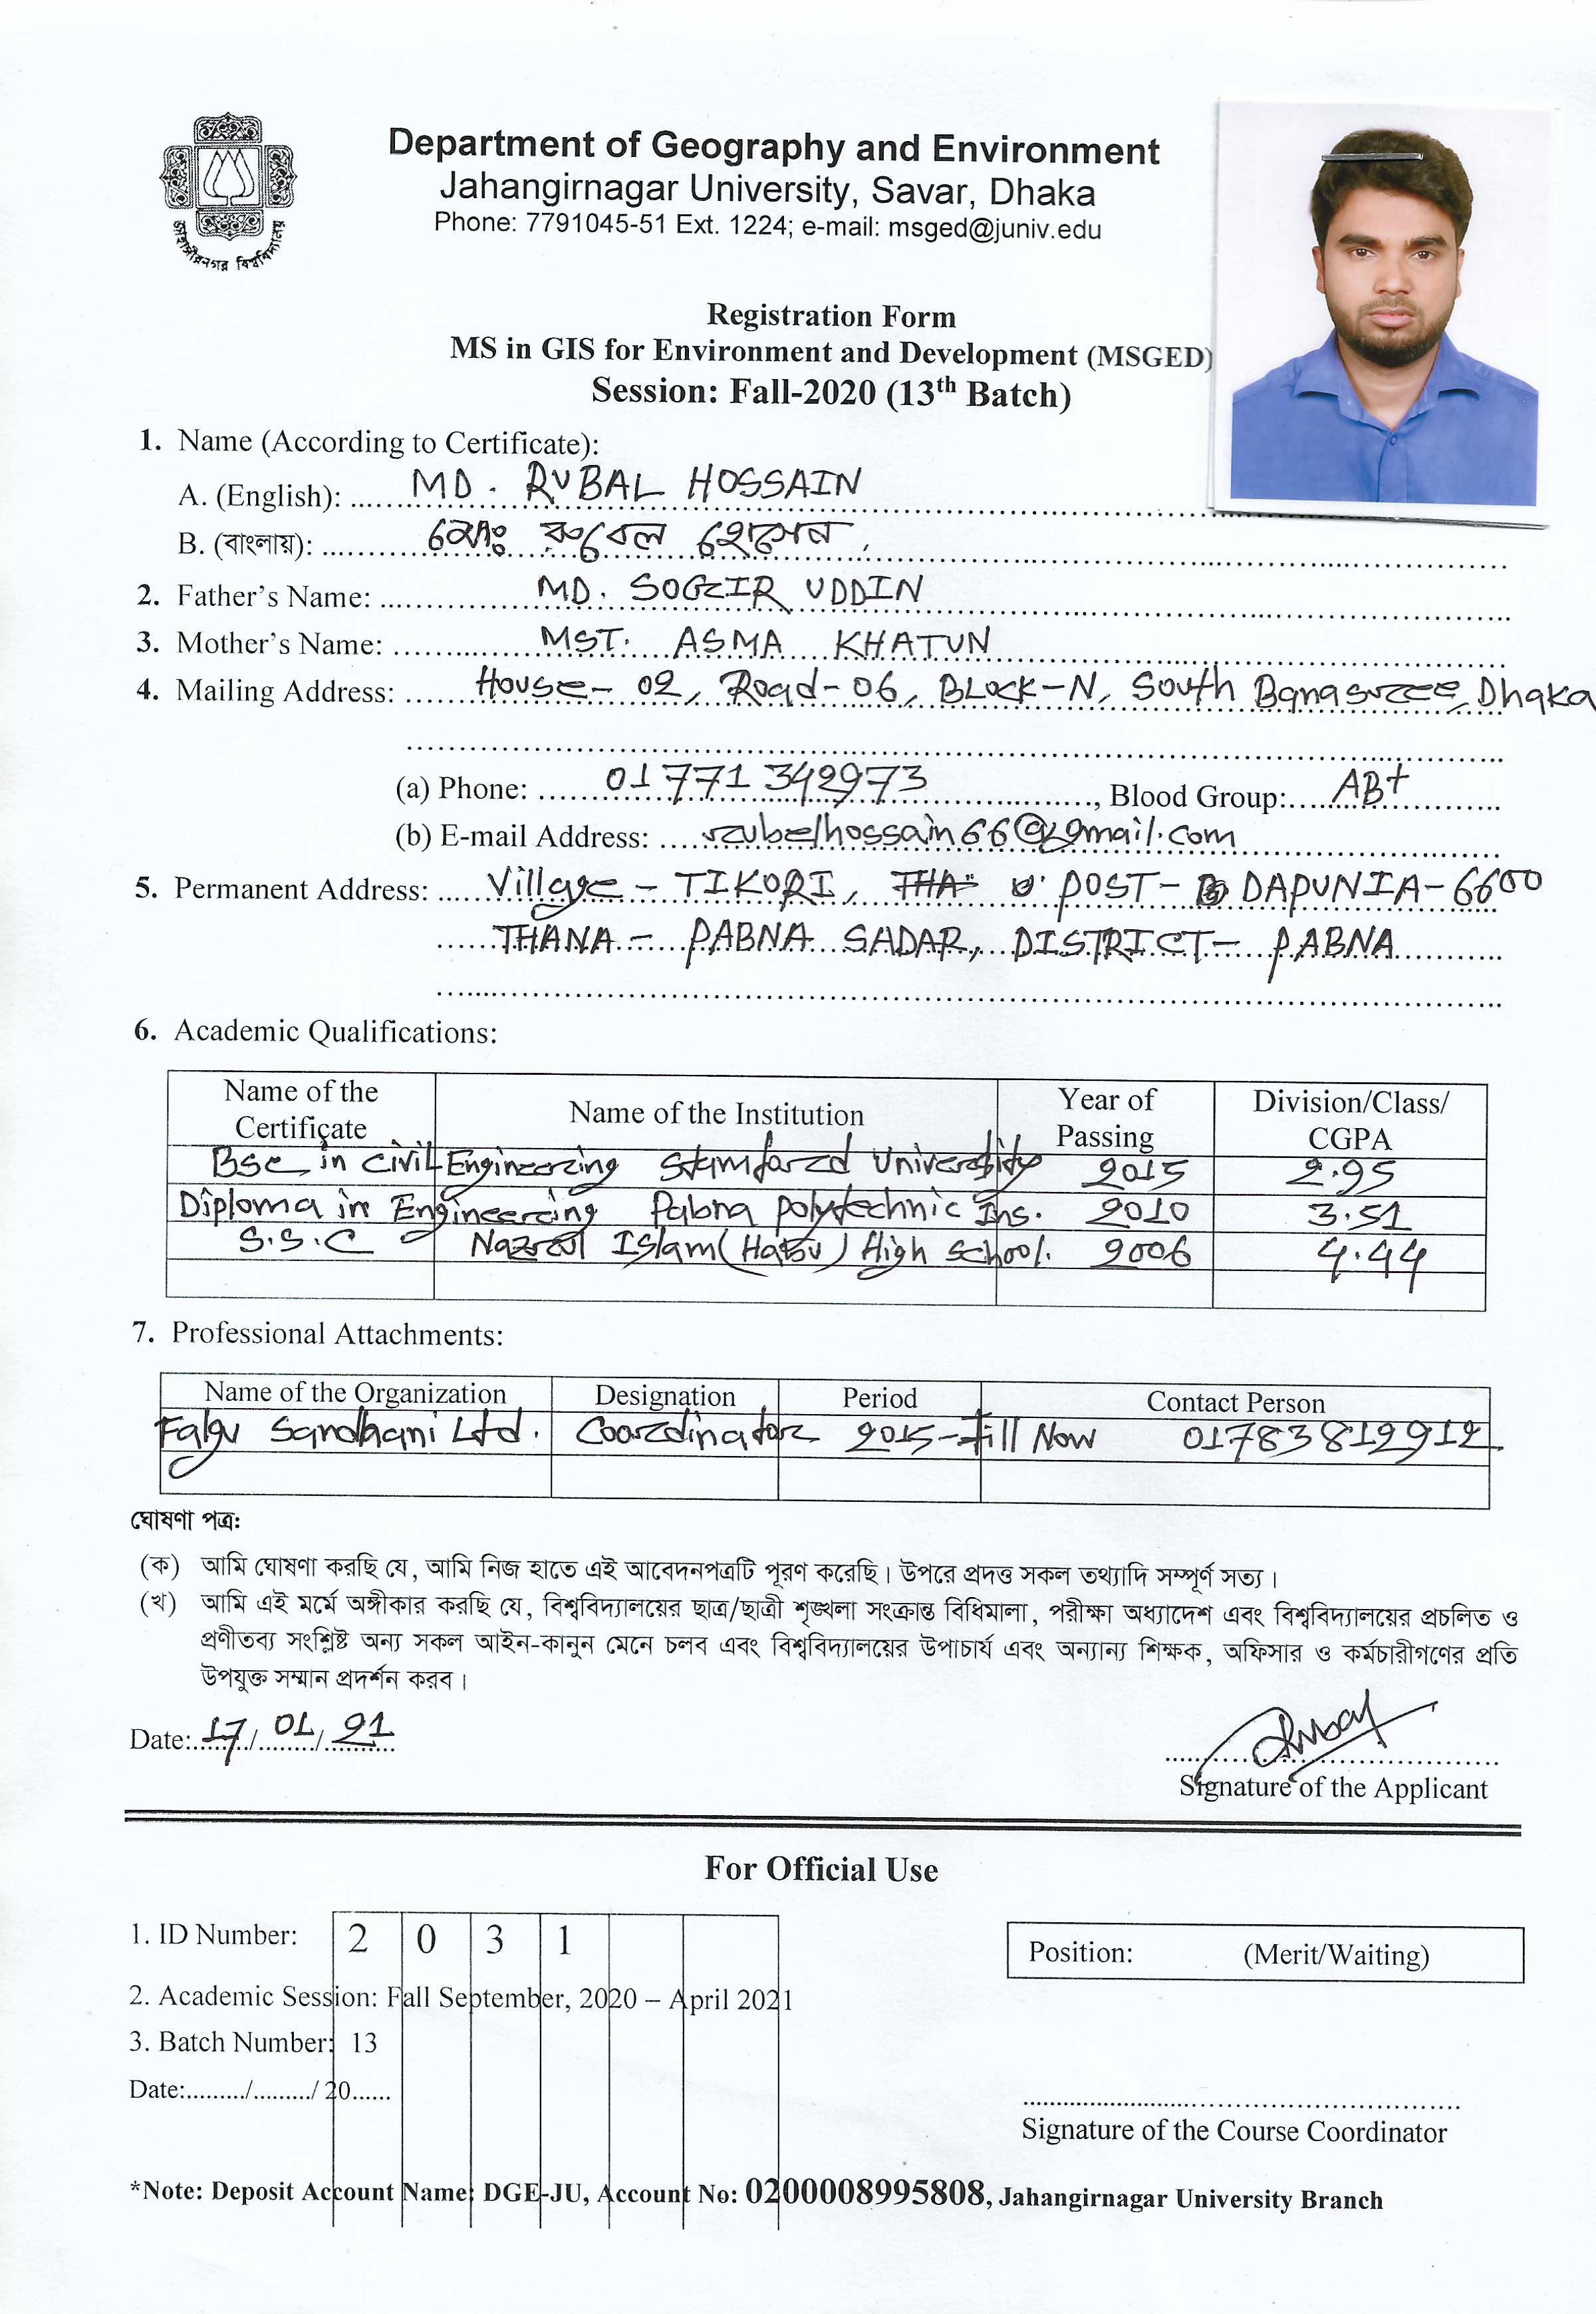 জাহাঙ্গীরনগর বিশ্ববিদ্যালয়
Department of Geography and Environment
Jahangirnagar University, Savar, Dhaka
Phone: 7791045-51 Ext. 1224; e-mail: msged@juniv.edu
Registration Form
MS in GIS for Environment and Development (MSGED)
Session: Fall-2020 (13th Batch)
1. Name (According to Certificate):
A. (English): MD. RUBAL HOSSAIN
B. (বাংলায়): মোঃ রুবেল হোসেন
2. Father's Name: MD. SOGIR UDDIN
3. Mother's Name: MST. ASMA KHATUN
4. Mailing Address: House- 02, Road-06, BLock-N, South Banasree, Dhaka
(a) Phone: 01771342973, Blood Group: AB+
(b) E-mail Address: rubelhossain66@gmail.com
5. Permanent Address: Village - TIKORI, POST- DAPUNIA-6600
THANA - PABNA SADAR, DISTRICT- PABNA
6. Academic Qualifications:
Name of the Certificate Name of the Institution Year of Passing Division/Class/ CGPA
Bsc in Civil Engineering Stamford University 2015 2.95
Diploma in Engineering Pabna polytechnic Ins. 2010 3.51
S.S.C Nazrul Islam (Habu) High school. 2006 4.44
7. Professional Attachments:
Name of the Organization Designation Period Contact Person
Falgu Sandhani Ltd. Coordinator 2015-Till Now 01783812912
ঘোষণা পত্র:
(ক) আমি ঘোষণা করছি যে, আমি নিজ হাতে এই আবেদনপত্রটি পূরণ করেছি। উপরে প্রদত্ত সকল তথ্যাদি সম্পূর্ণ সত্য।
(খ) আমি এই মর্মে অঙ্গীকার করছি যে, বিশ্ববিদ্যালয়ের ছাত্র/ছাত্রী শৃঙ্খলা সংক্রান্ত বিধিমালা, পরীক্ষা অধ্যাদেশ এবং বিশ্ববিদ্যালয়ের প্রচলিত ও
প্রণীতব্য সংশ্লিষ্ট অন্য সকল আইন-কানুন মেনে চলব এবং বিশ্ববিদ্যালয়ের উপাচার্য এবং অন্যান্য শিক্ষক, অফিসার ও কর্মচারীগণের প্রতি
উপযুক্ত সম্মান প্রদর্শন করব।
Date: 17/01/21
Signature of the Applicant
For Official Use
1. ID Number: 2 0 3 1
Position: (Merit/Waiting)
2. Academic Session: Fall September, 2020 – April 2021
3. Batch Number: 13
Date:........./........./ 20......
Signature of the Course Coordinator
*Note: Deposit Account Name: DGE-JU, Account No: 0200008995808, Jahangirnagar University Branch